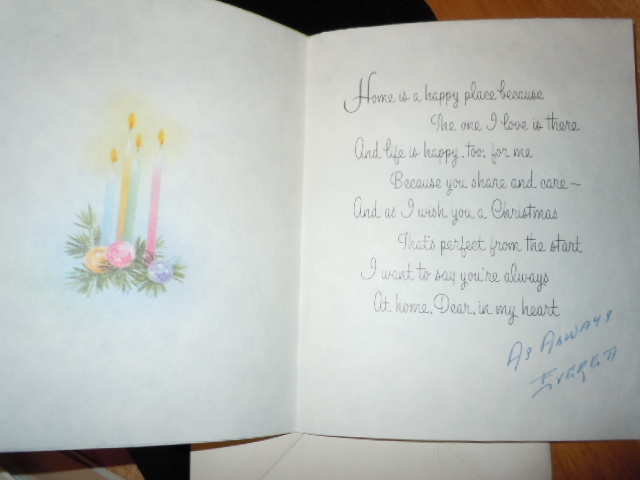 Home is a happy place because
The one I love is there
And life is happy, too, for me
Because you share and care~
And as I wish you a Christmas
That's perfect from the start
I want to say you're always
At home, Dear, in my heart
AS ALWAYS
EVERETT